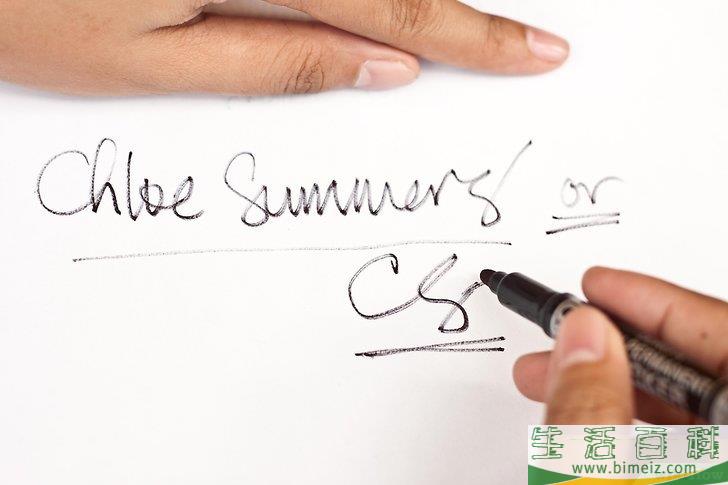 Chloe Summers or
CS
生活百科
www.bimeiz.com